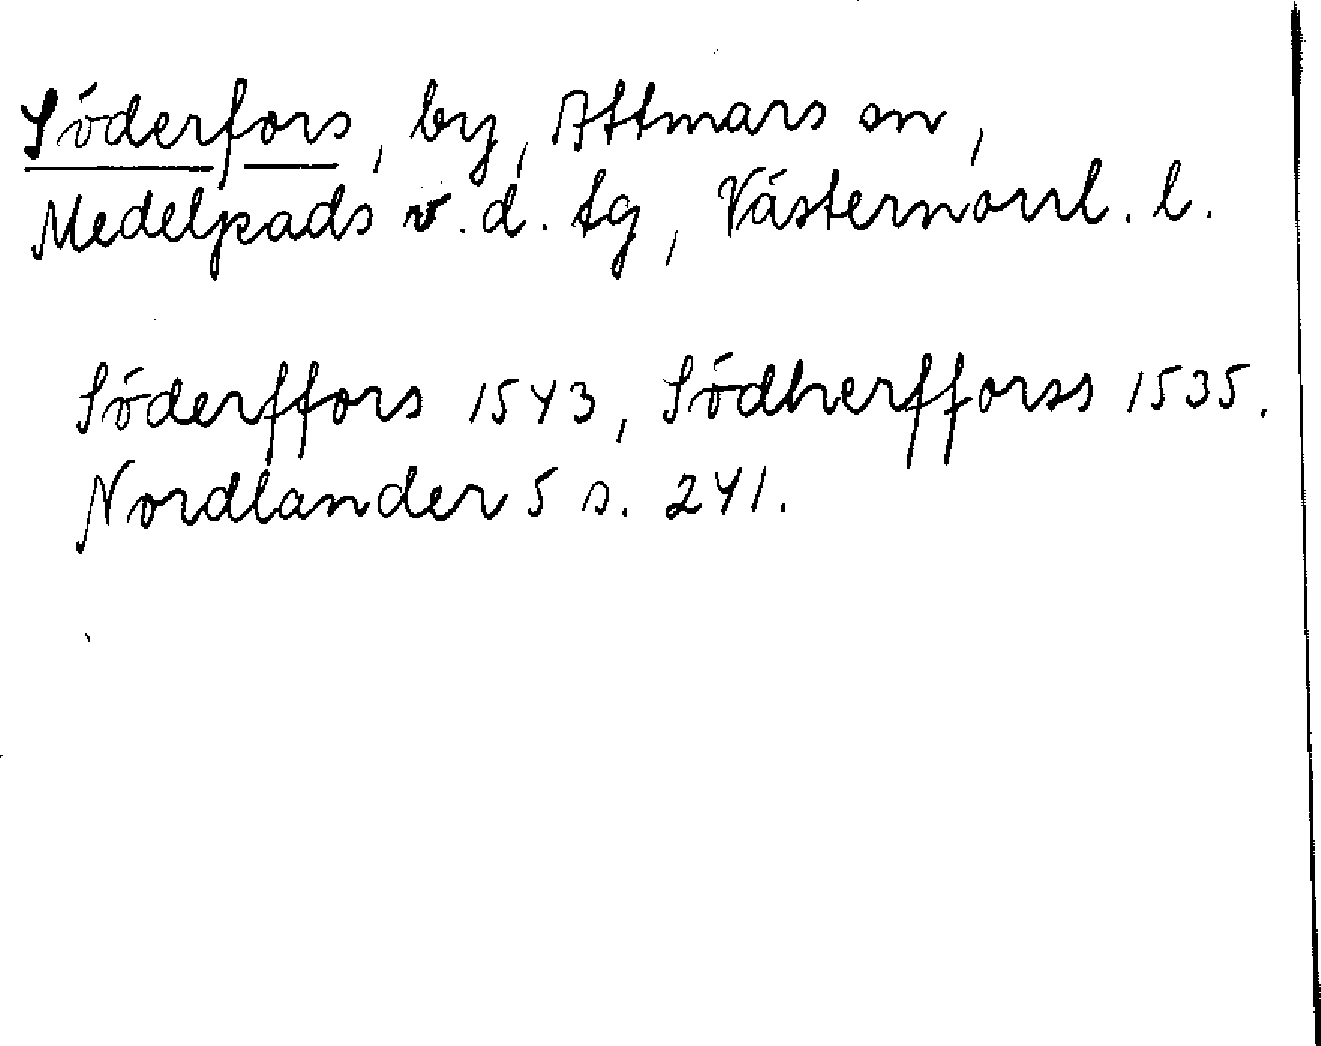 Söderfors, by, Attmars sn,
Medelpads v. d. tg, Västernorrl. l.
Söderffors 1543, Södherfforss 1535.
Nordlander 5 s. 241.